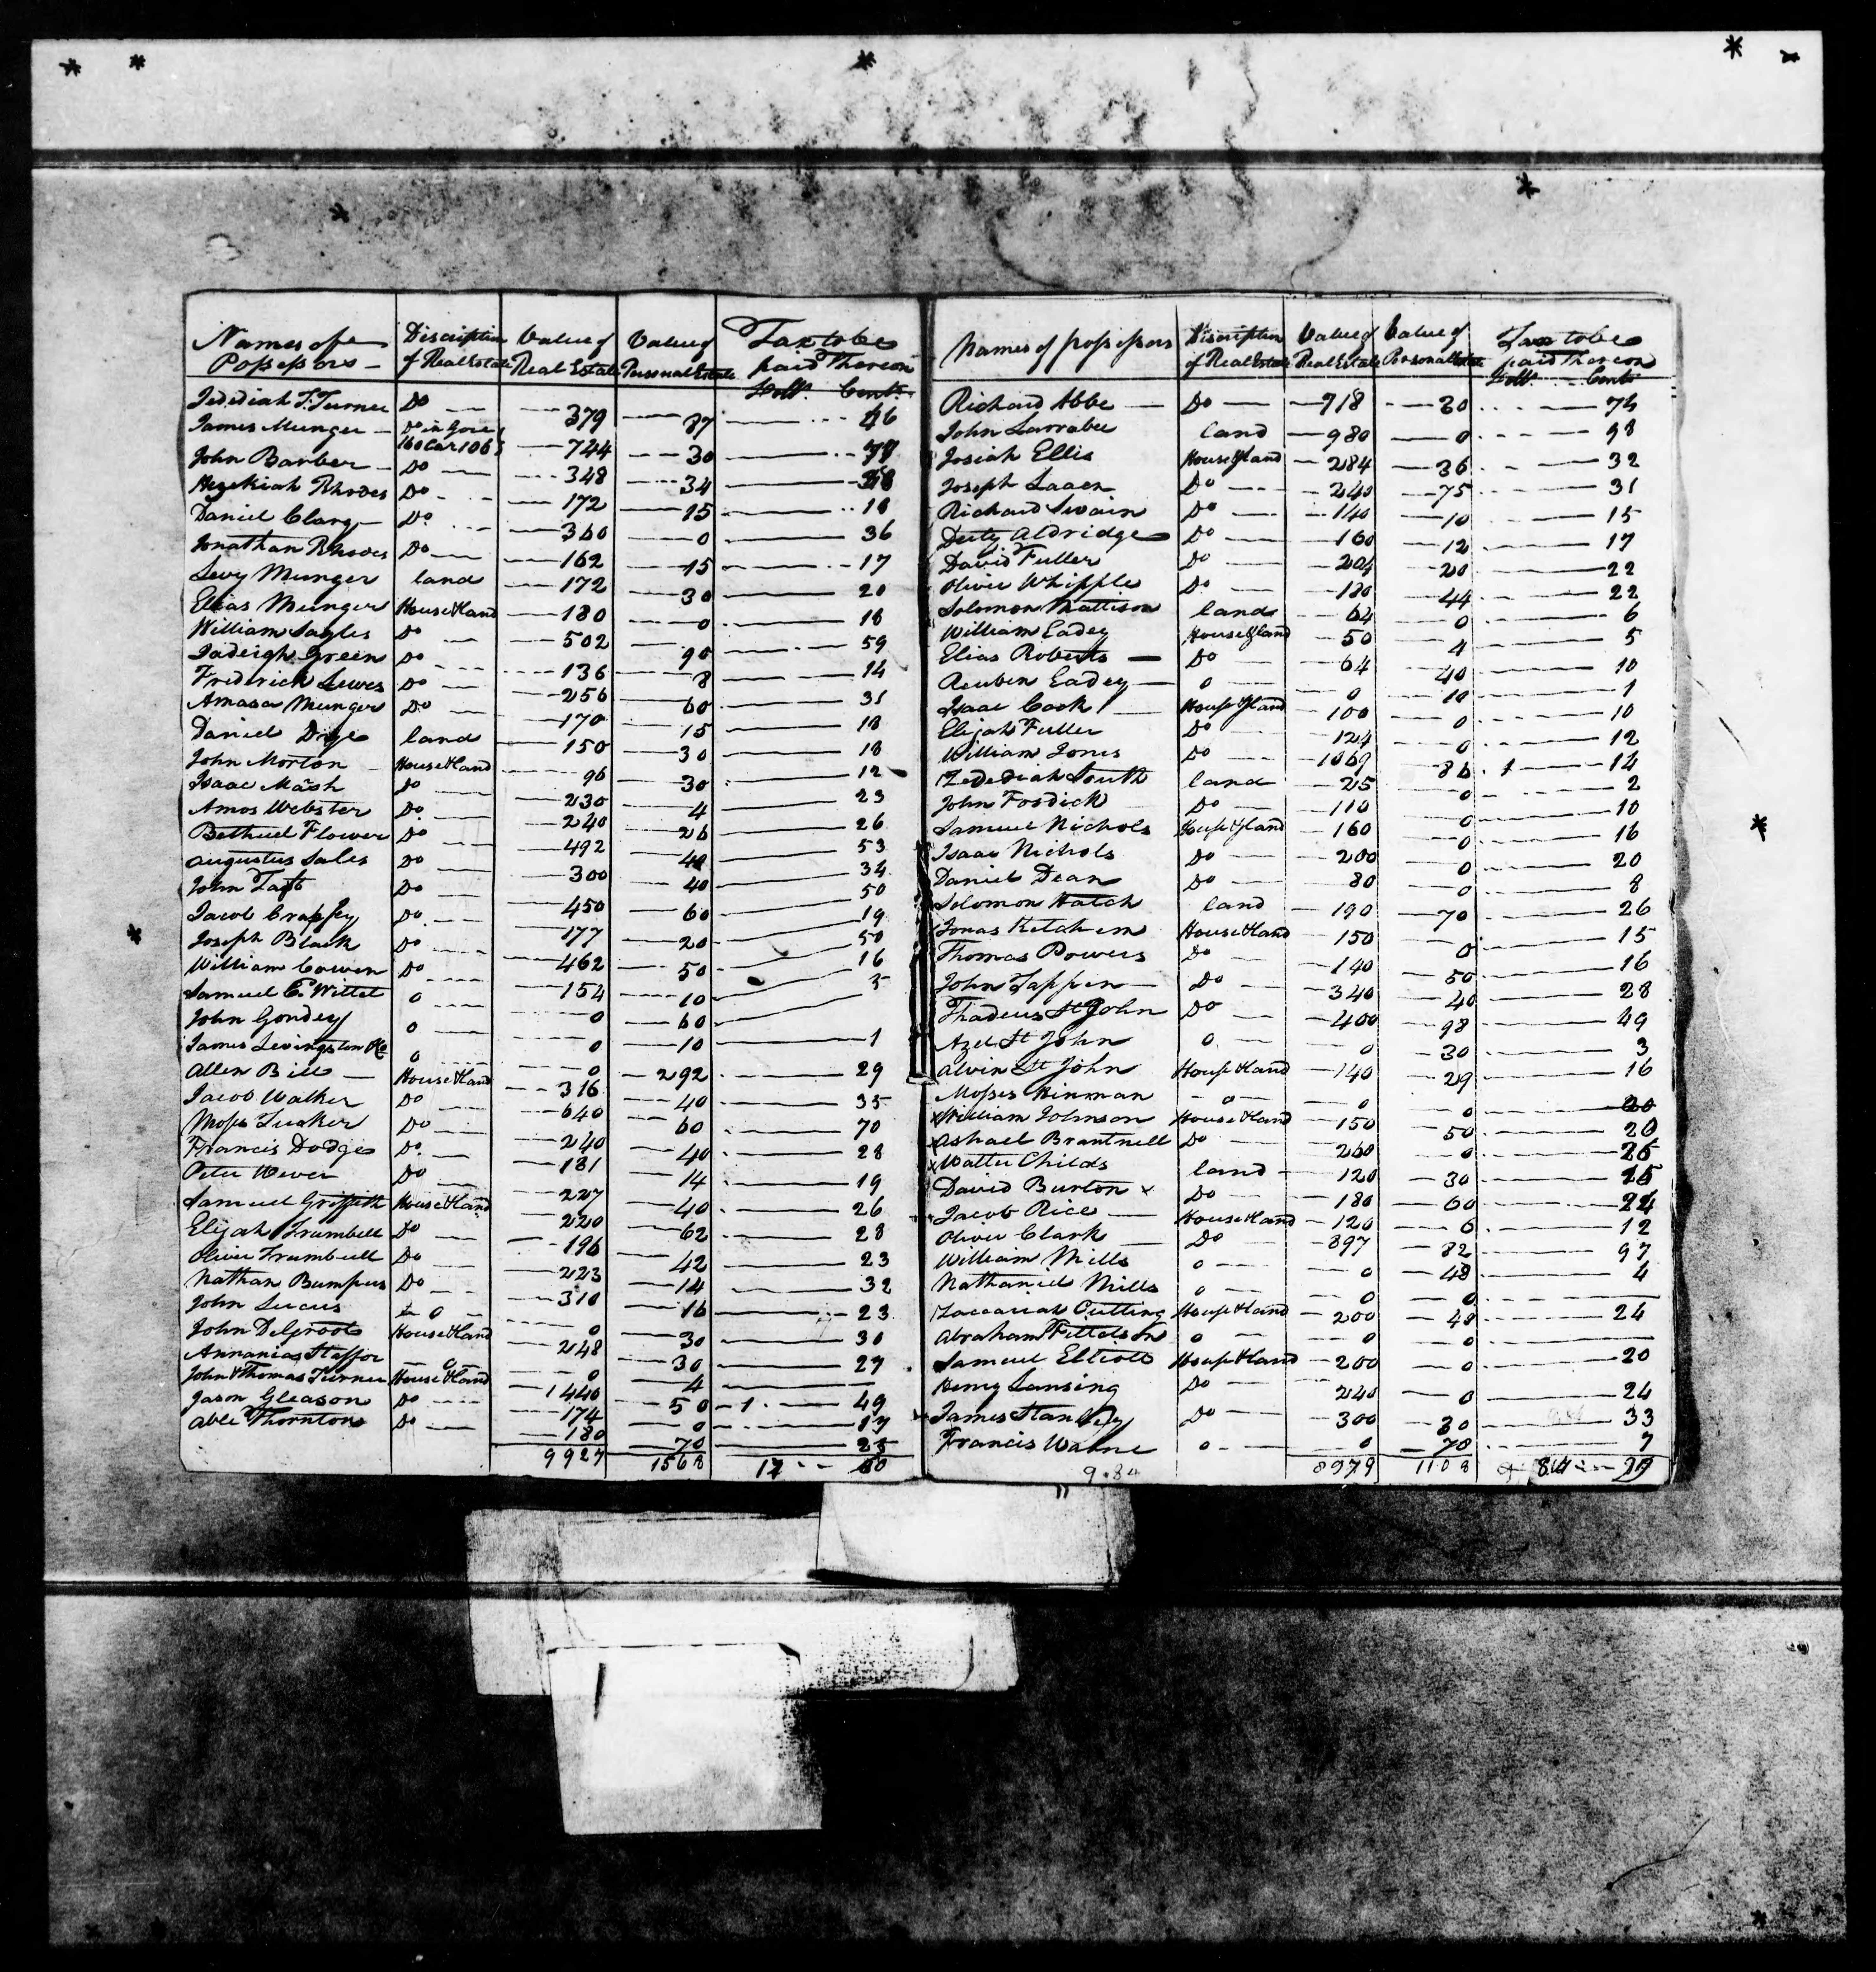 Names of Possessors — Discription of Real Estate Value of Real Estate Value of Personal Estate Tax to be paid Thereon Dolls. Cents
Jedediah T. Turner Do 379 87 46
James Munger Do in Gore 160 Car 106 744 30 77
John Barber Do 348 34 38
Hezekiah Rhodes Do 172 15 18
Daniel Clarg Do 360 0 36
Jonathan Rhodes Do 162 15 17
Levy Munger land 172 30 20
Elias Munger House & land 180 0 18
William Sayles Do 502 90 59
Jadeigh Green Do 136 8 14
Frederick Lewes Do 256 60 31
Amasa Munger Do 170 15 18
Daniel Drye land 150 30 18
John Morton House & land 96 30 12
Isaac Mash Do 230 4 23
Amos Webster Do 240 26 26
Bethuel Flower Do 492 40 53
Augustus Sales Do 300 40 34
John Taft Do 450 60 50
Jacob Crapsey Do 177 20 19
Joseph Black Do 462 50 50
William Cowen Do 154 10 16
Samuel C. Wittet 0 0 60 5
John Gondey 0 0 10 1
James Levingston 0 0 292 29
Allen Bill House & land 316 40 35
Jacob Walker Do 640 60 70
Moses Tucker Do 240 40 28
Francis Dodge Do 181 14 19
Peter Wever Do 227 40 26
Samuel Griffith House & land 220 62 28
Elijah Trumbell Do 196 42 23
Oliver Trumbull Do 223 14 32
Nathan Bumpus Do 310 16 23
John Lucus 0 0 30 30
John DeGroot House & land 248 30 27
Annanias Staffor 0 0 4
John & Thomas Turner House & land 1440 50 1 49
Jason Gleason Do 174 0 17
Able Thornton Do 180 70 25
9927 1568 17 60
Names of possessors Discription of Real Estate Value of Real Estate Value of Personal Estate Tax to be paid Thereon Dolls. Cents
Richard Abbe Do 718 30 74
John Larrabee land 980 0 98
Josiah Ellis House & land 284 36 32
Joseph Laaen Do 240 75 31
Richard Swain Do 140 10 15
Duty Aldridge Do 160 12 17
David Fuller Do 204 20 22
Oliver Whipple Do 180 44 22
Solomon Mattison land 64 0 6
William Eadey House & land 50 4 5
Elias Roberts Do 64 40 10
Reuben Eadey 0 0 10 1
Isaac Cook House & land 100 0 10
Elijah Fuller Do 124 0 12
William Jones Do 1069 86 1 14
Zededeah South land 25 0 2
John Fosdick Do 110 0 10
Samuel Nichols House & land 160 0 16
Isaac Nichols Do 200 0 20
Daniel Dean Do 80 0 8
Solomon Hatch land 190 70 26
Jonas Ketchem House & land 150 0 15
Thomas Powers Do 140 50 16
John Tappen Do 340 40 28
Thadeus St John Do 400 98 49
Azel St John 0 0 30 3
Alvin St John House & land 140 29 16
Moses Hinman 0 0 0
William Johnson House & land 150 50 20
Ashael Brantnell Do 260 0 26
Walter Childs land 120 30 15
David Burton Do 180 60 24
Jacob Rice House & land 120 0 12
Oliver Clark Do 897 82 97
William Mills 0 0 48 4
Nathaniel Mills 0 0 0
Zaccariah Cutting House & land 200 40 24
Abraham Fittelson 0 0 0
Samuel Elliott House & land 200 0 20
Henry Lansing Do 240 0 24
James Stanley Do 300 30 33
Francis Warne 0 0 70 7
9.84 8979 1108